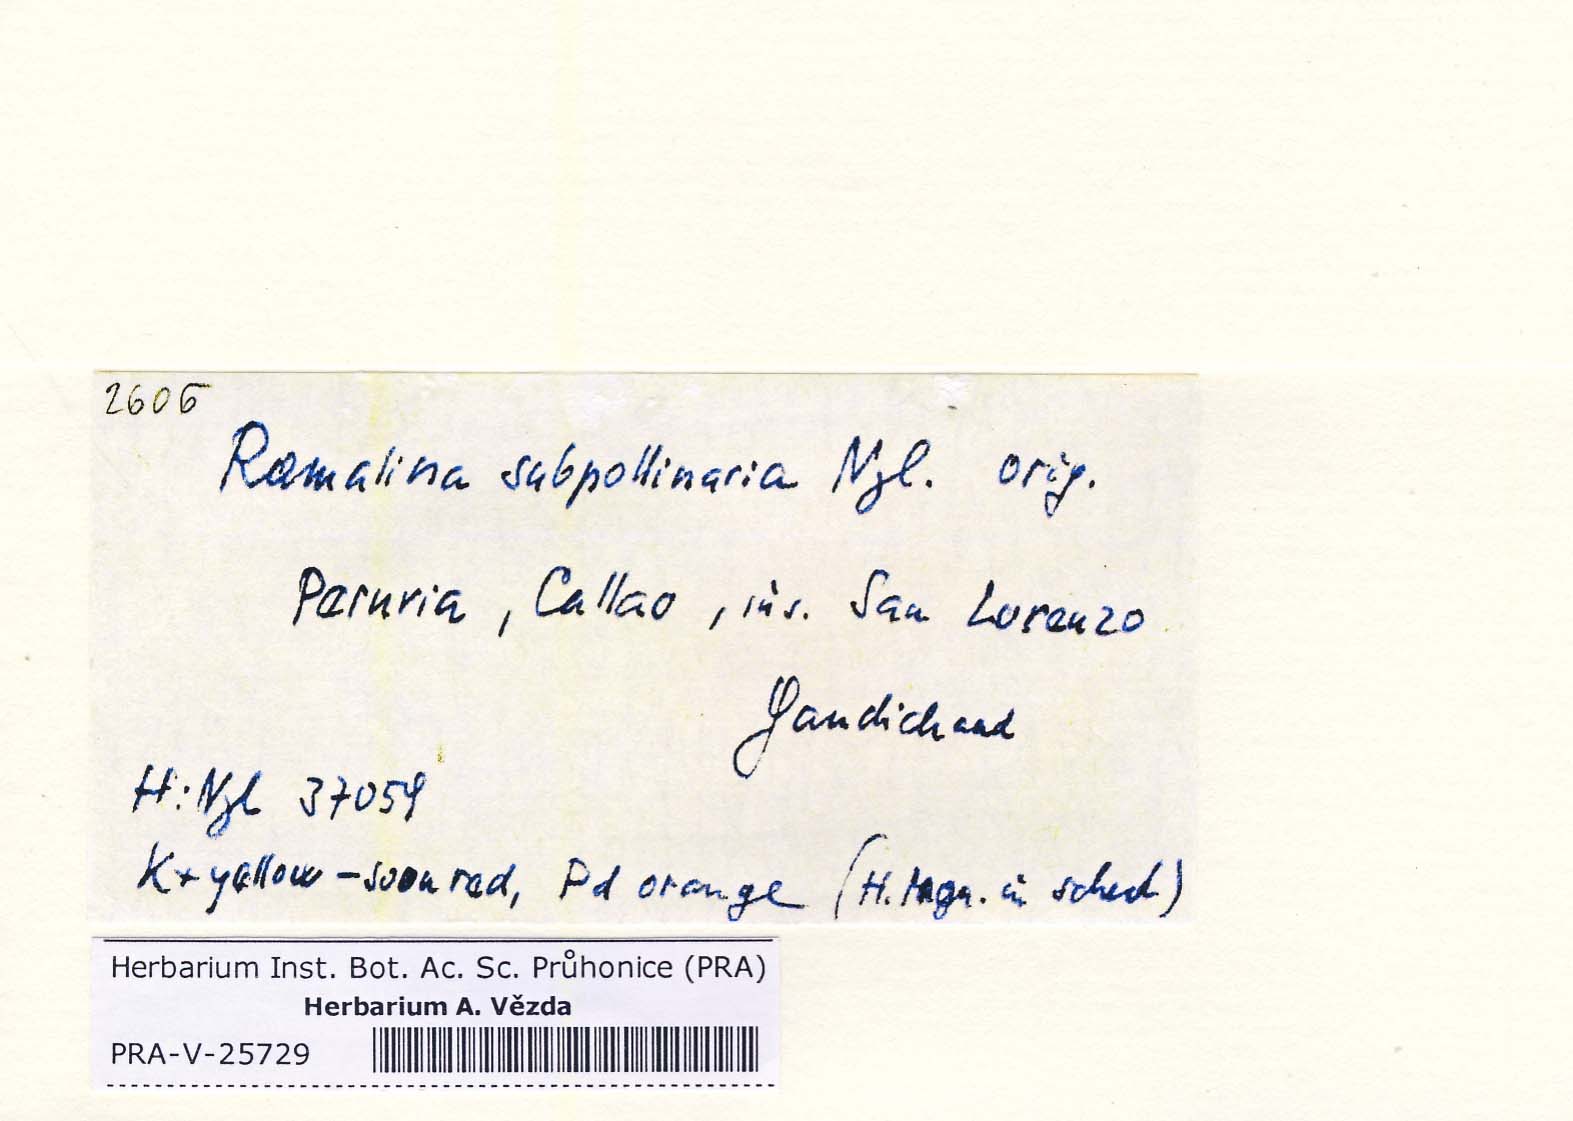 2606
Ramalina subpollinaria Nyl. orig.
Peruvia, Callao, ins. San Lorenzo
Gaudichaud
H: Nyl 37059
K+ yellow - soon red, Pd orange (H. Magn. in sched.)
Herbarium Inst. Bot. Ac. Sc. Průhonice (PRA)
Herbarium A. Vězda
PRA-V-25729